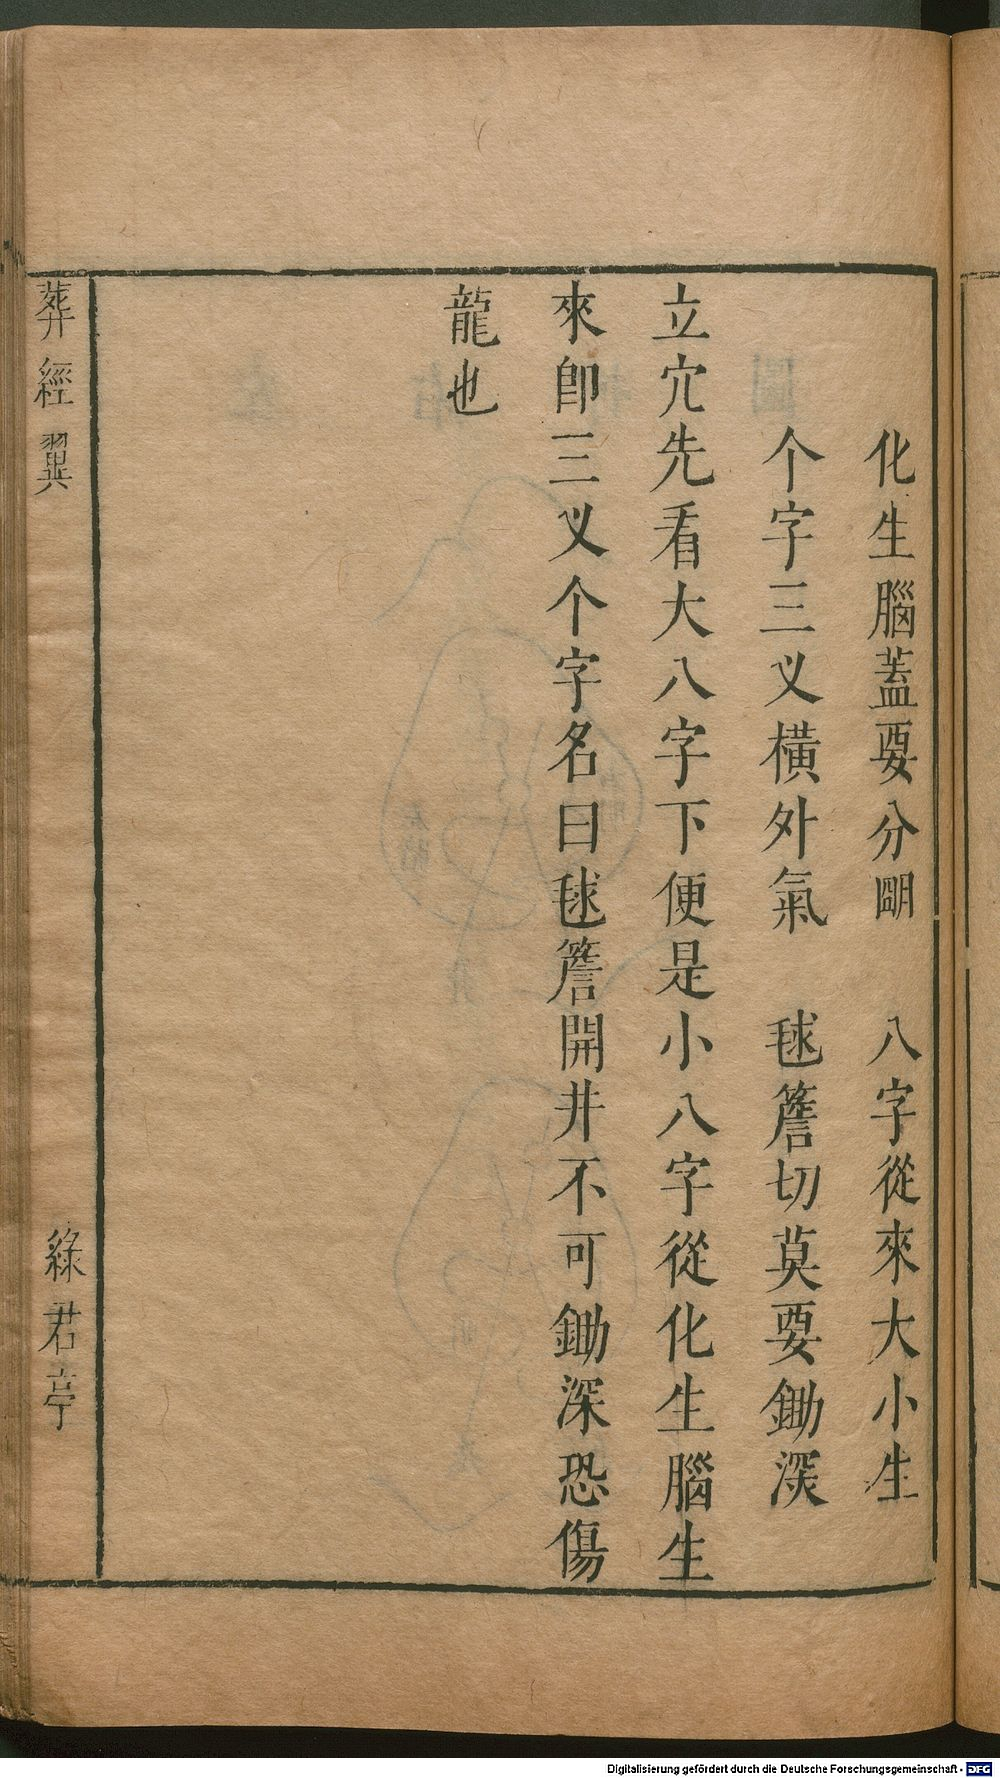 化生腦蓋要分朙　八字從來大小生
个字三义橫外氣　毬簷切莫要鋤深
立穴先看大八字下便是小八字從化生腦生
來卽三义个字名曰毬簷開井不可鋤深恐傷
龍也
葬經翼
綠君亭
Digitalisierung gefördert durch die Deutsche Forschungsgemeinschaft - DFG